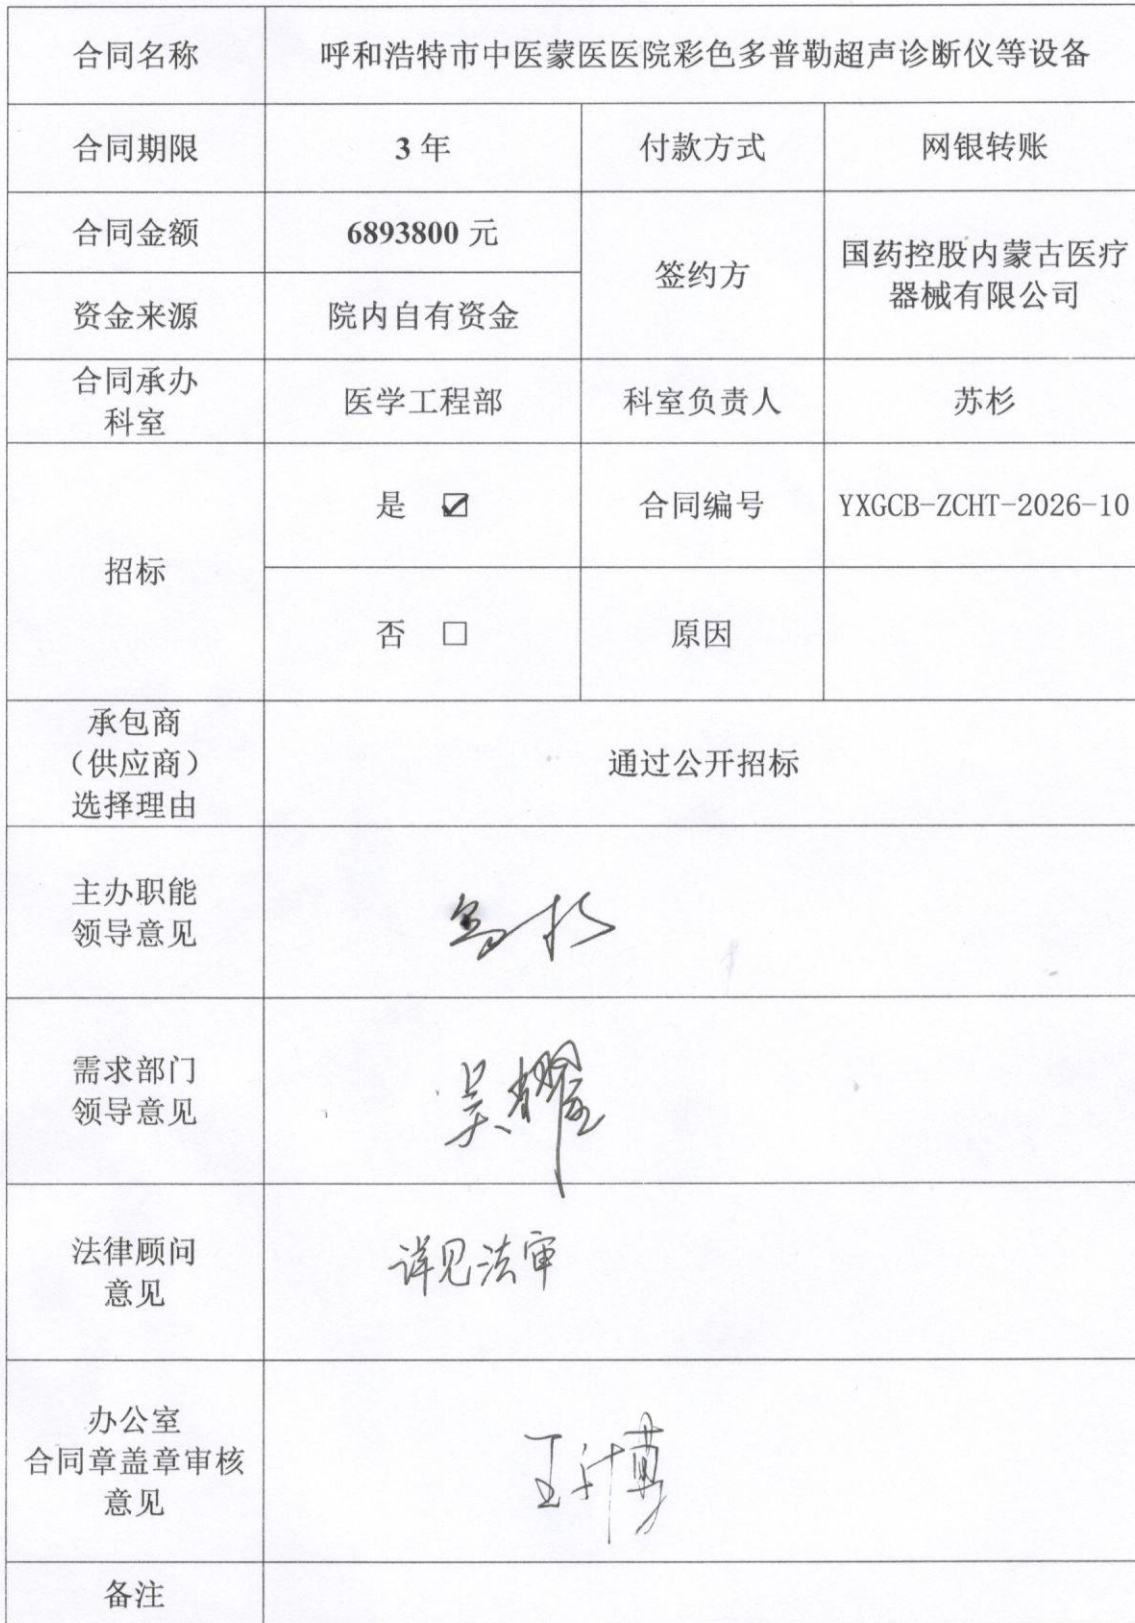 合同名称 呼和浩特市中医蒙医医院彩色多普勒超声诊断仪等设备
合同期限 3 年 付款方式 网银转账
合同金额 6893800 元 签约方 国药控股内蒙古医疗
器械有限公司
资金来源 院内自有资金
合同承办
科室 医学工程部 科室负责人 苏杉
招标 是 ☑ 合同编号 YXGCB-ZCHT-2026-10
否 □ 原因
承包商
（供应商）
选择理由 通过公开招标
主办职能
领导意见
需求部门
领导意见 吴耀
法律顾问
意见 详见法审
办公室
合同章盖章审核
意见
备注